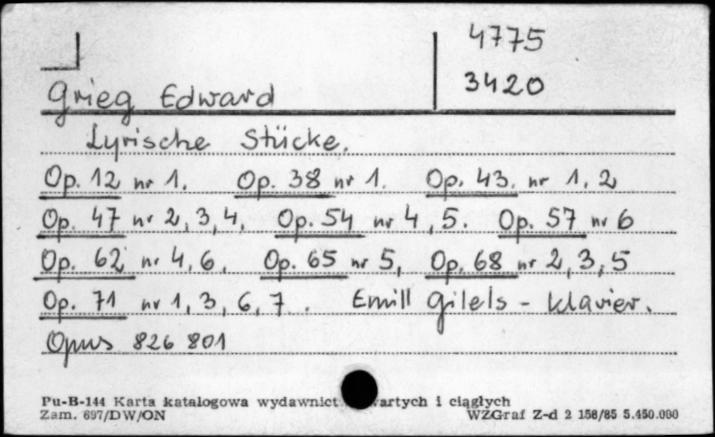 4775
3420
Grieg Edward
Lyrische Stücke.
Op. 12 nr 1. Op. 38 nr 1. Op. 43. nr 1, 2
Op. 47 nr 2, 3, 4, Op. 54 nr 4, 5. Op. 57 nr 6
Op. 62, nr 4, 6, Op. 65 nr 5, Op. 68 nr 2, 3, 5
Op. 71 nr 1, 3, 6, 7. Emill Gilels - Klavier.
Opus 826 801
Pu-B-144 Karta katalogowa wydawnict wartych i ciągłych
Zam. 697/DW/ON WZGraf Z-d 2 158/85 5.450.000